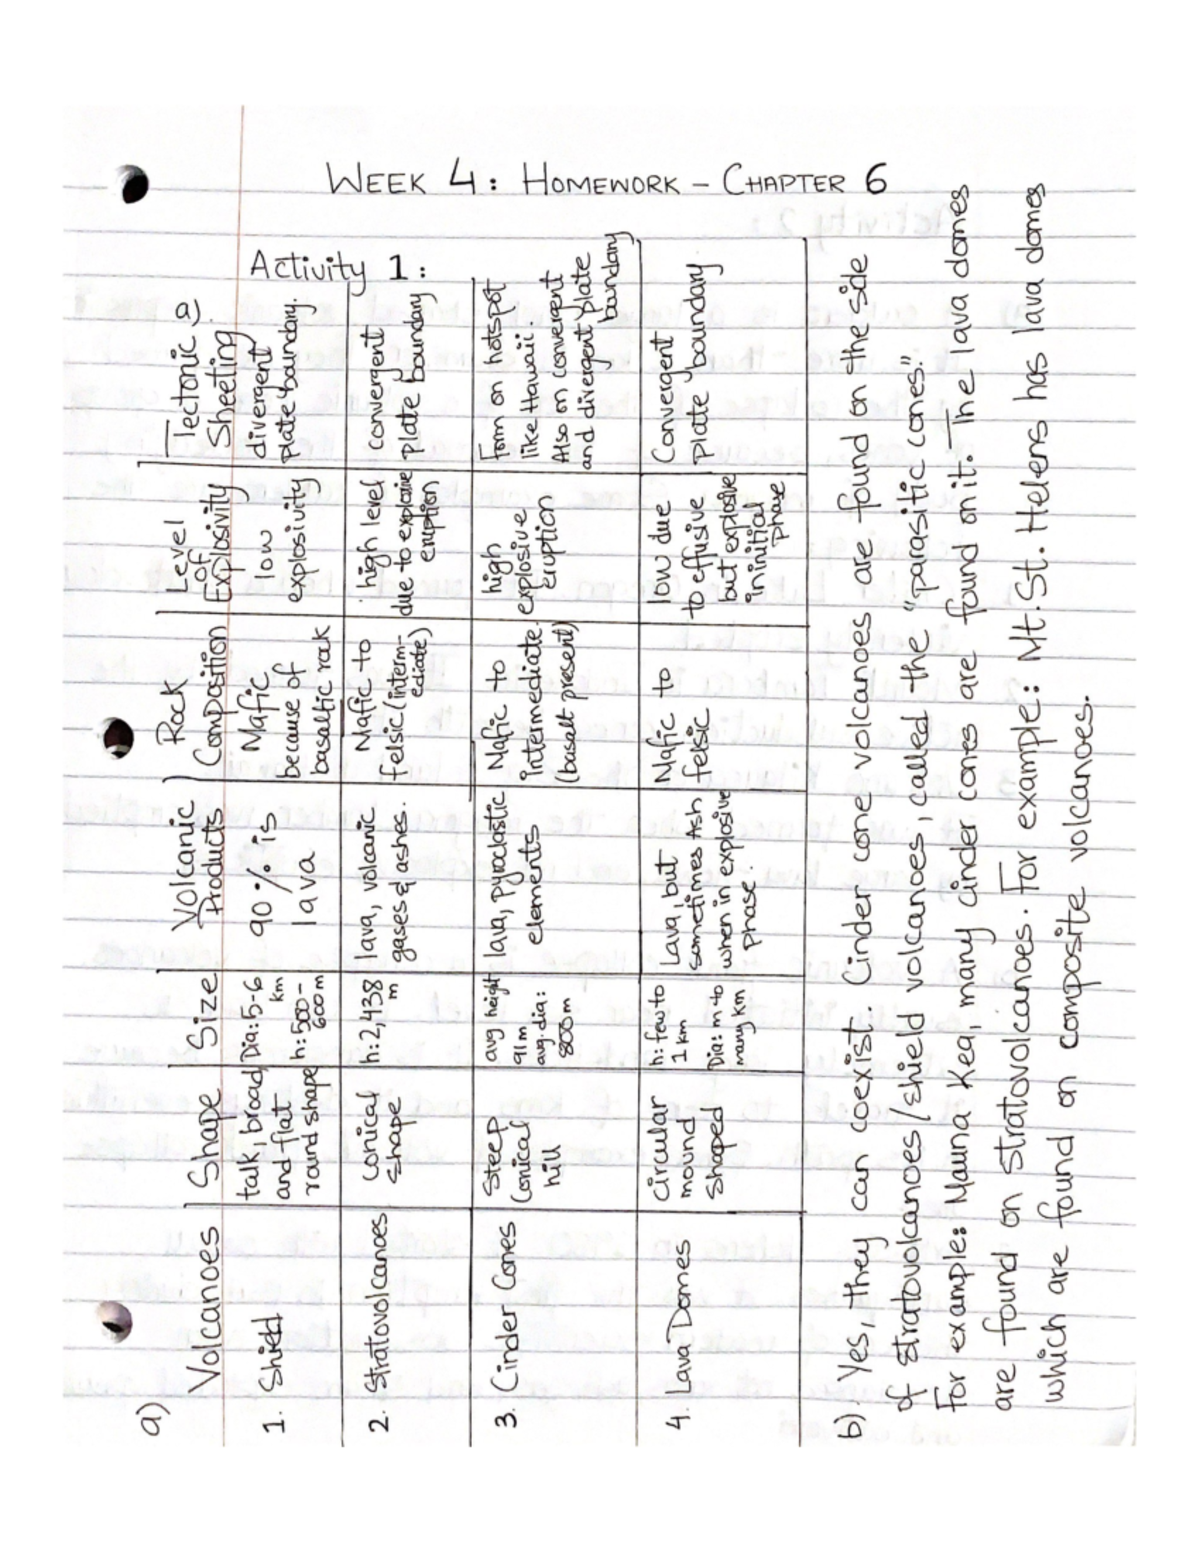 WEEK 4: HOMEWORK - CHAPTER 6
Activity 1:
a)
Volcanoes | Shape | Size | Volcanic Products | Rock Composition | Level of Explosivity | Tectonic Sheeting
1. Shield | tall, broad, and flat round shape | Dia: 5-6 km h: 500-600m | 90% is lava | Mafic because of basaltic rock | low explosivity | divergent plate boundary.
2. Stratovolcanoes | Conical shape | h: 2,438 m | lava, volcanic gases & ashes. | Mafic to felsic (intermediate) | high level due to explosive eruption | convergent plate boundary
3. Cinder Cones | Steep Conical hill | avg height 91m avg. dia: 800m | lava, pyroclastic elements | Mafic to intermediate. (basalt present) | high explosive eruption | Form on hotspot like Hawaii. Also on convergent and divergent plate boundary
4. Lava Domes | Circular mound shaped | h: few to 1 km Dia: m to many km | Lava, but sometimes Ash when in explosive phase. | Mafic to felsic | low due to effusive but explosive in initial phase | Convergent plate boundary
b). Yes, they can coexist. Cinder cone volcanoes are found on the side
of stratovolcanoes/shield volcanoes, called the "parasitic cones."
For example: Mauna Kea, many cinder cones are found on it. The lava domes
are found on stratovolcanoes. For example: Mt. St. Helens has lava domes
which are found on composite volcanoes.